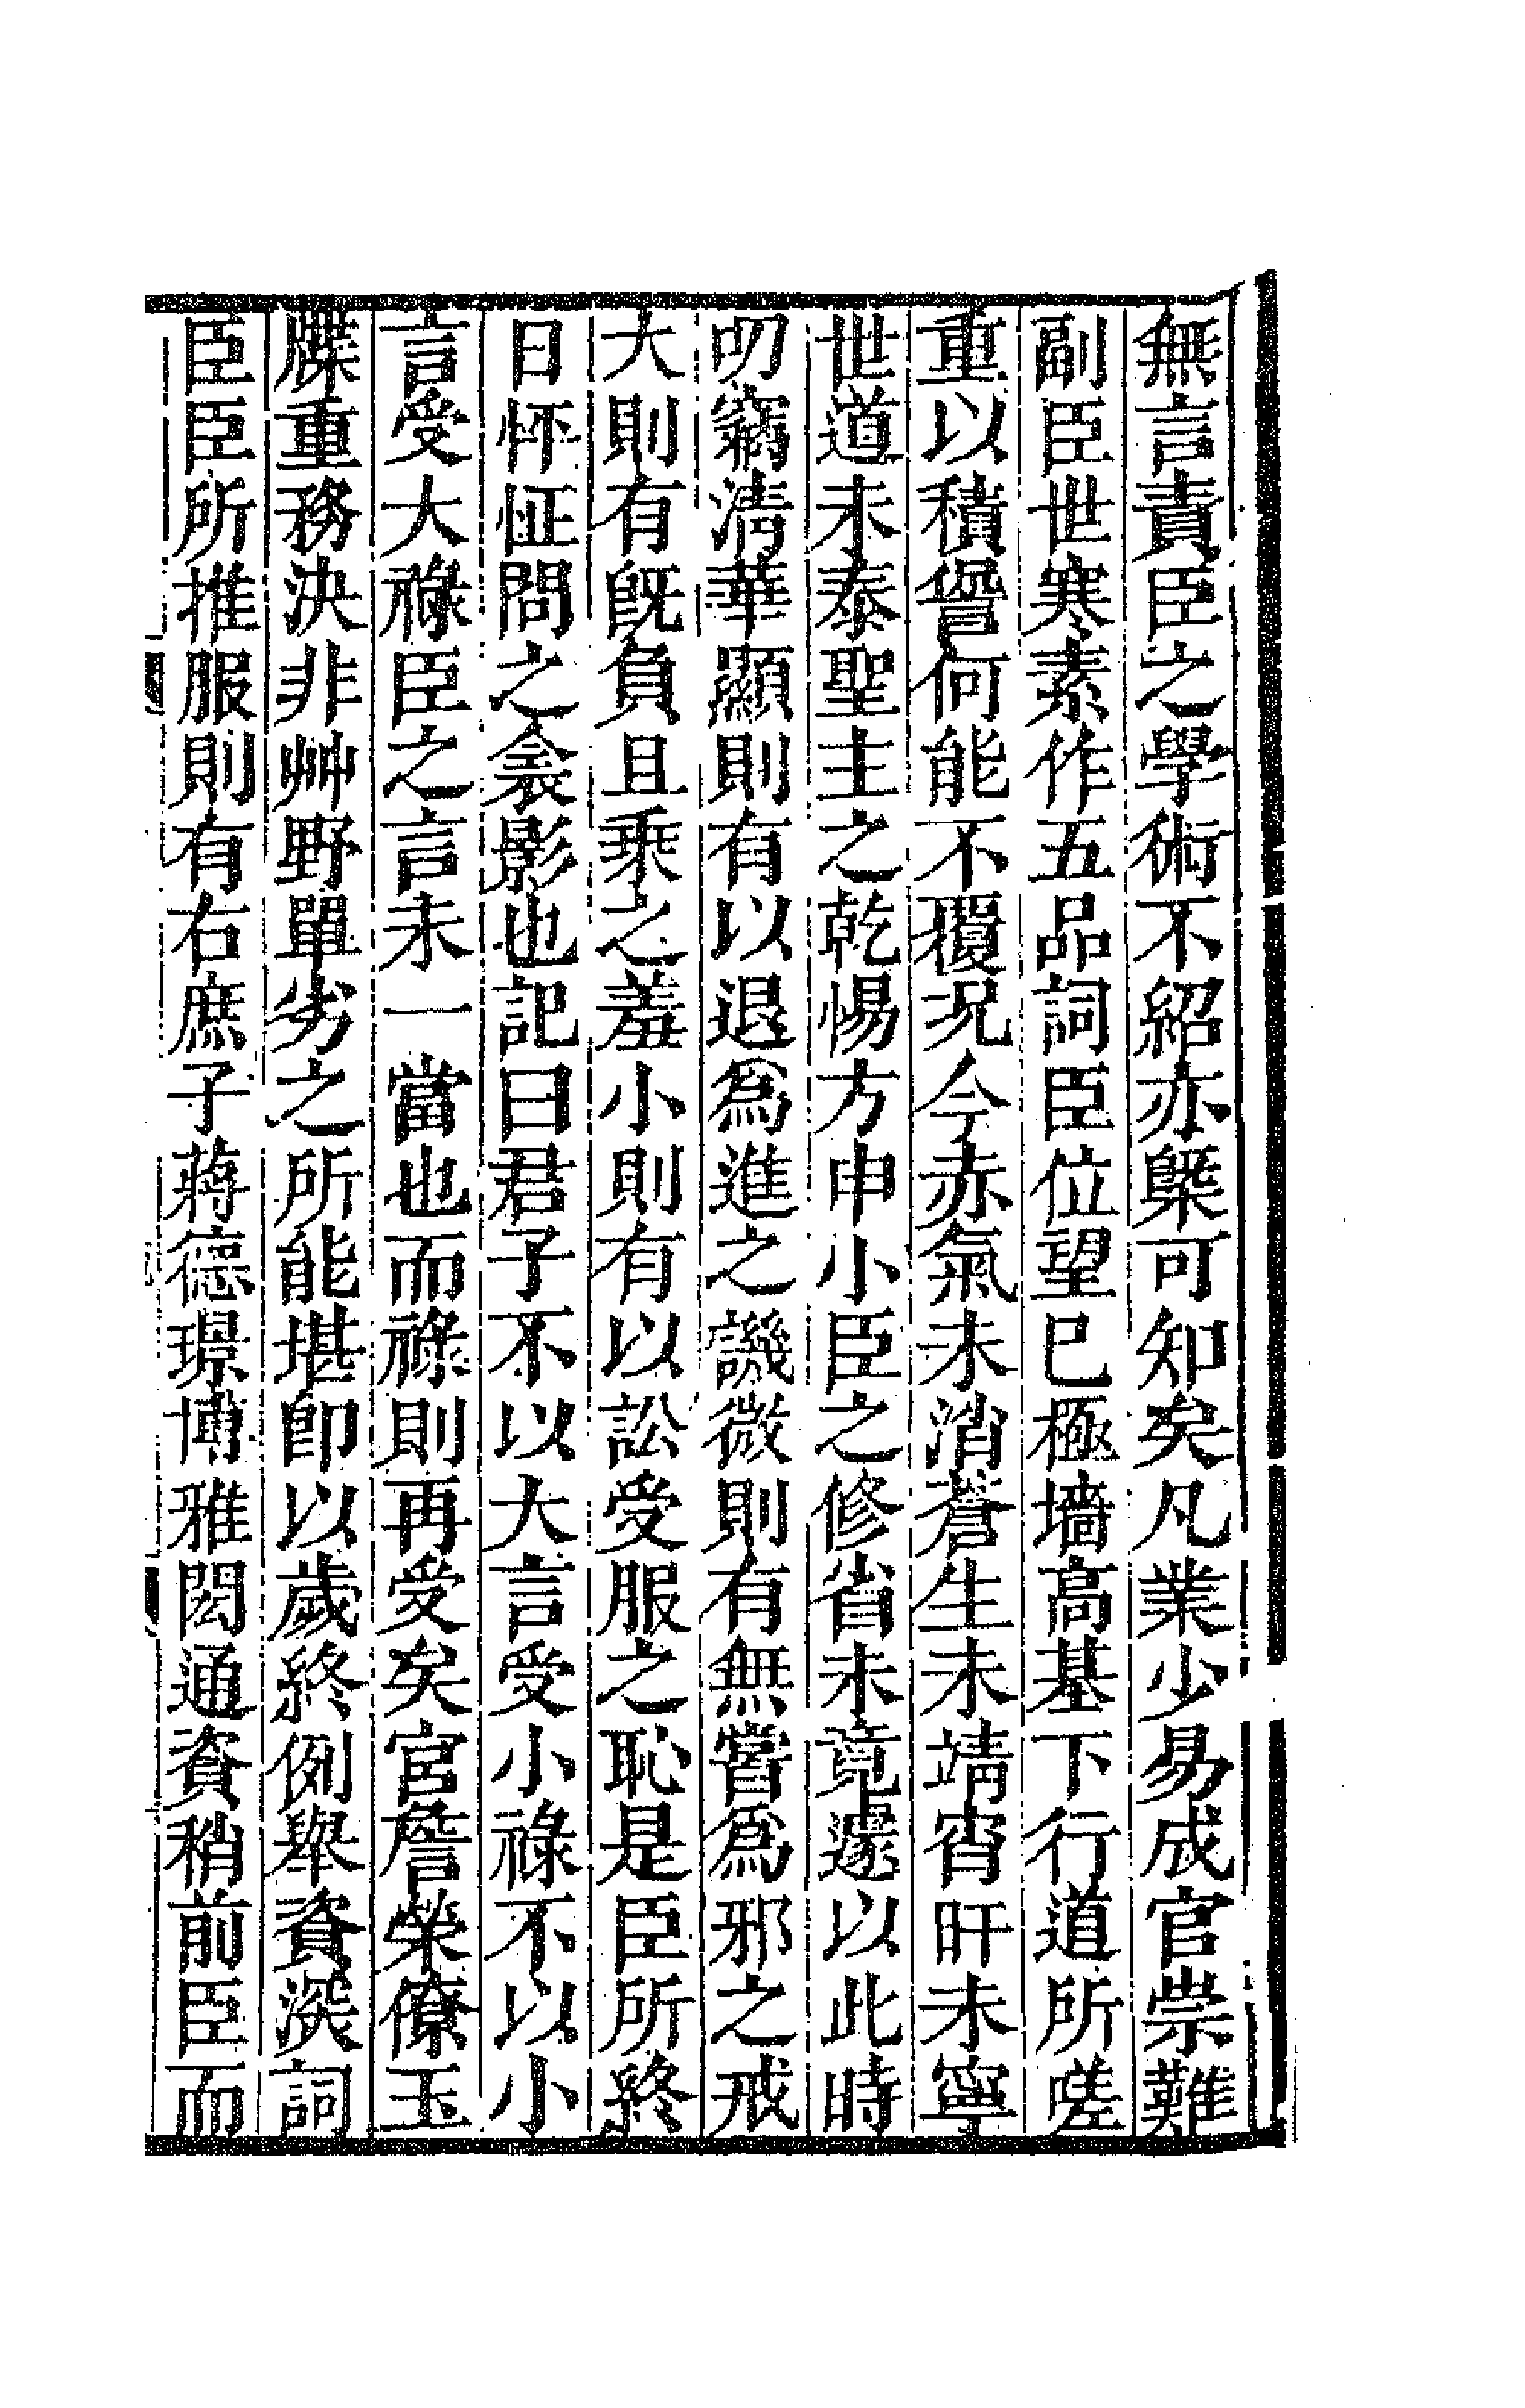 無言責臣之學術不紹亦槩可知矣凡業少易成官崇難
副臣世寒素作五品詞臣位望已極墻高基下行道所嗟
重以積諐何能不覆况今赤氣未消蒼生未靖宵旰未寧
世道未泰聖主之乾惕方申小臣之修省未竟遽以此時
叨竊清華顯則有以退爲進之譏微則有無嘗爲邪之戒
大則有旣負且乘之羞小則有以訟受服之恥是臣所終
日怀怔問之衾影也記曰君子不以大言受小祿不以小
言受大祿臣之言未一當也而祿則再受矣宮詹榮僚玉
牒重務決非艸野單劣之所能堪卽以歲終例舉資深詞
臣臣所推服則有右庶子蔣德璟博雅閎通資稍前臣而